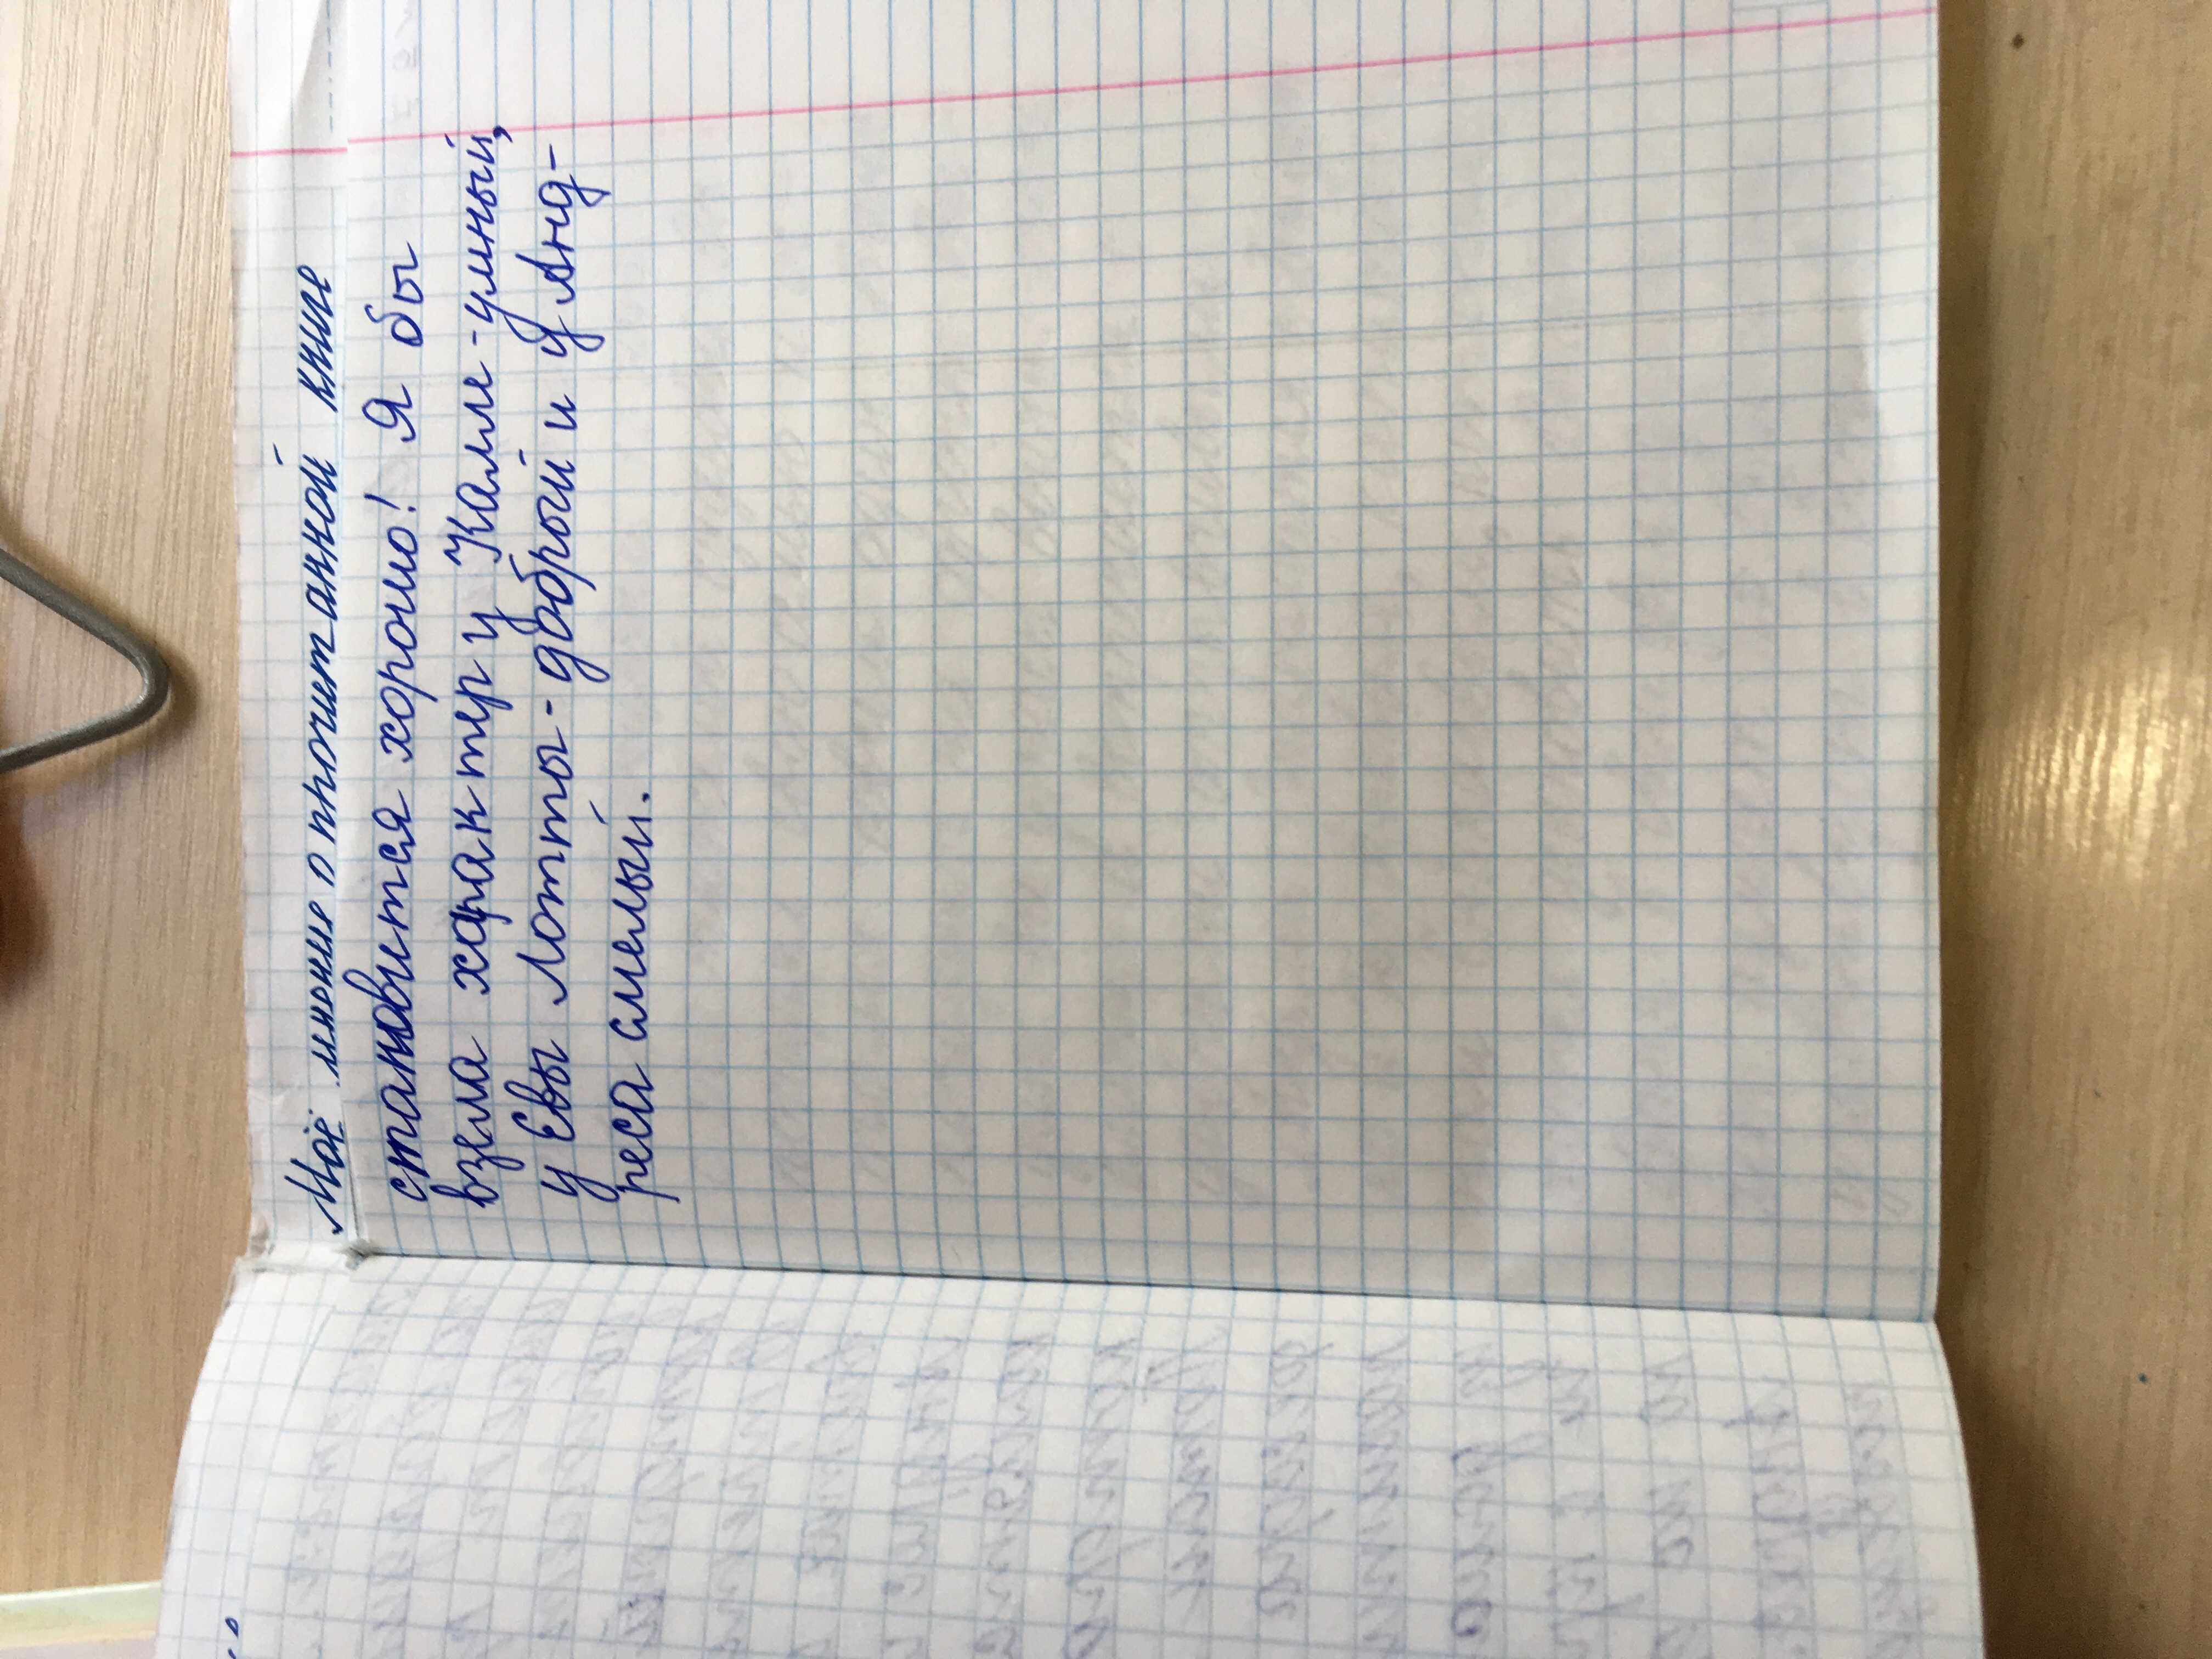 Моё мнение о прочитанной книге
становится хорошо! Я бы
взела характер у Калле - умный,
у Евы Лотты - добрый и у Анд-
реса смелый.